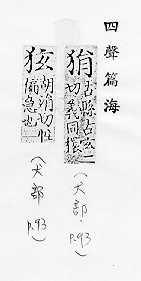 四聲篇海
狷
古縣古玄二
切義同㹡
(犬部. p.93)
㹡
胡涓切性
偏急也
(犬部 p.93)